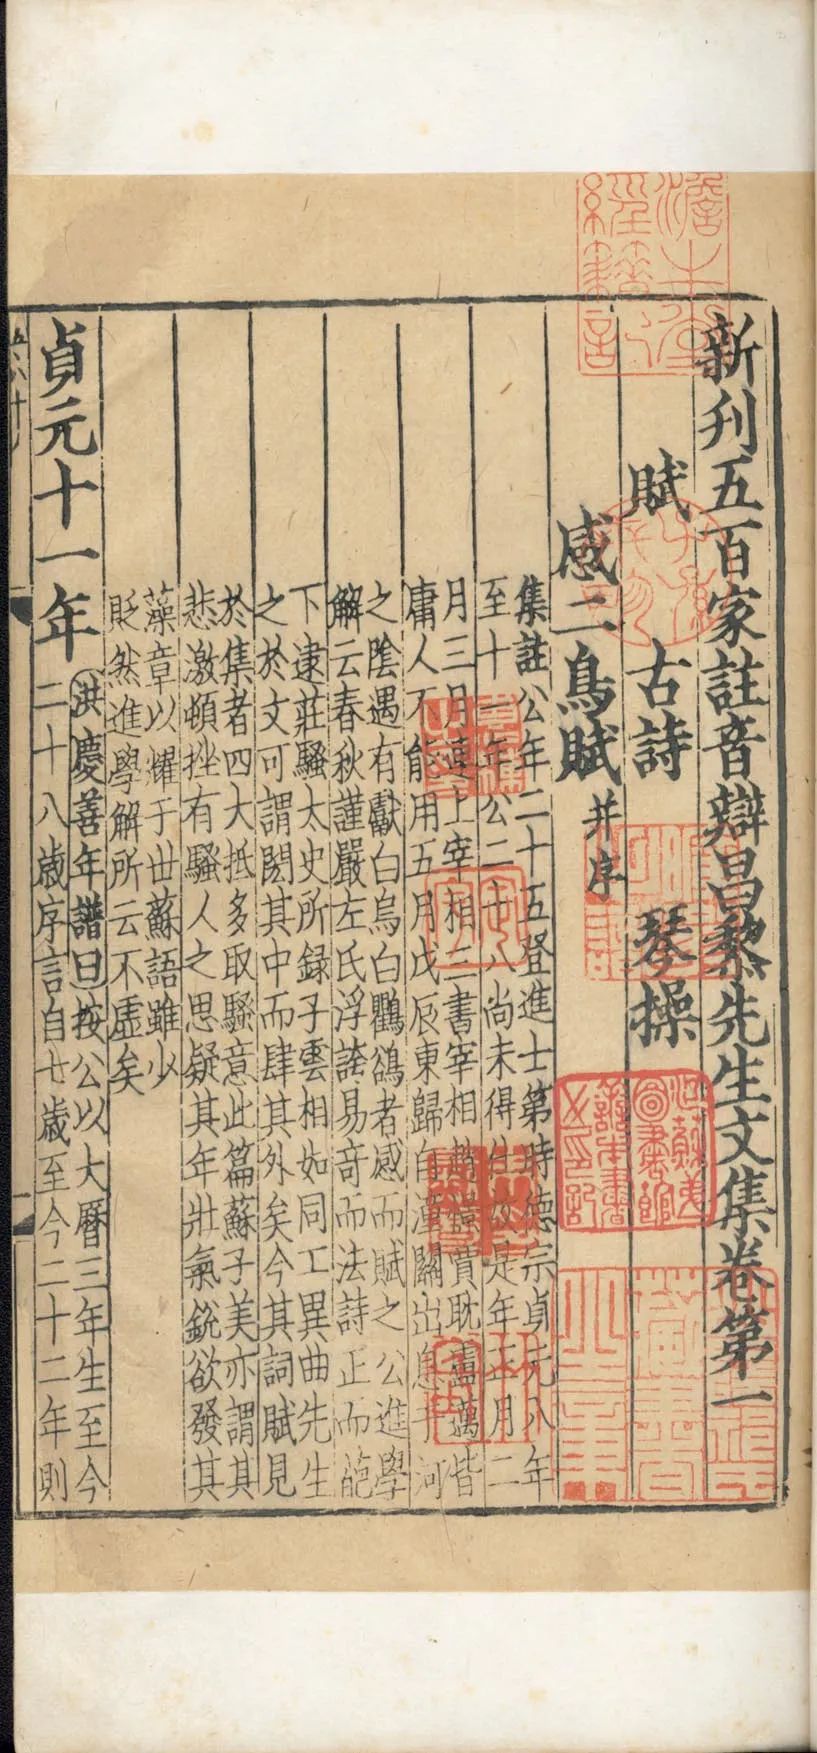 新刊五百家註音辯昌黎先生文集卷第一
賦 古詩 琴操
感二鳥賦 并序
集註公年二十五登進士第時德宗貞元八年
至十一年公二十八尚未得仕故是年正月二
月三月連上宰相三書宰相趙憬賈耽盧邁皆
庸人不能用五月戊辰東歸自潼關出息于河
之陰遇有獻白烏白鸜鵒者感而賦之公進學
解云春秋謹嚴左氏浮誇易奇而法詩正而葩
下逮莊騷太史所錄子雲相如同工異曲先生
之於文可謂閎其中而肆其外矣今其詞賦見
於集者四大抵多取騷意此篇蘇子美亦謂其
悲激頓挫有騷人之思疑其年壯氣銳欲發其
藻章以耀于世蘇語雖少
貶然進學解所云不虛矣
貞元十一年
洪慶善年譜曰按公以大曆三年生至今
二十八歲序言自七歲至今二十二年則